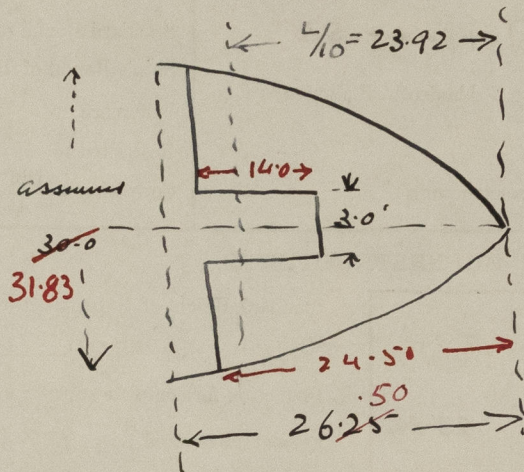 L/10 = 23.92
14.0
assume
3.0'
30.0
31.83
24.50
.50
26.25